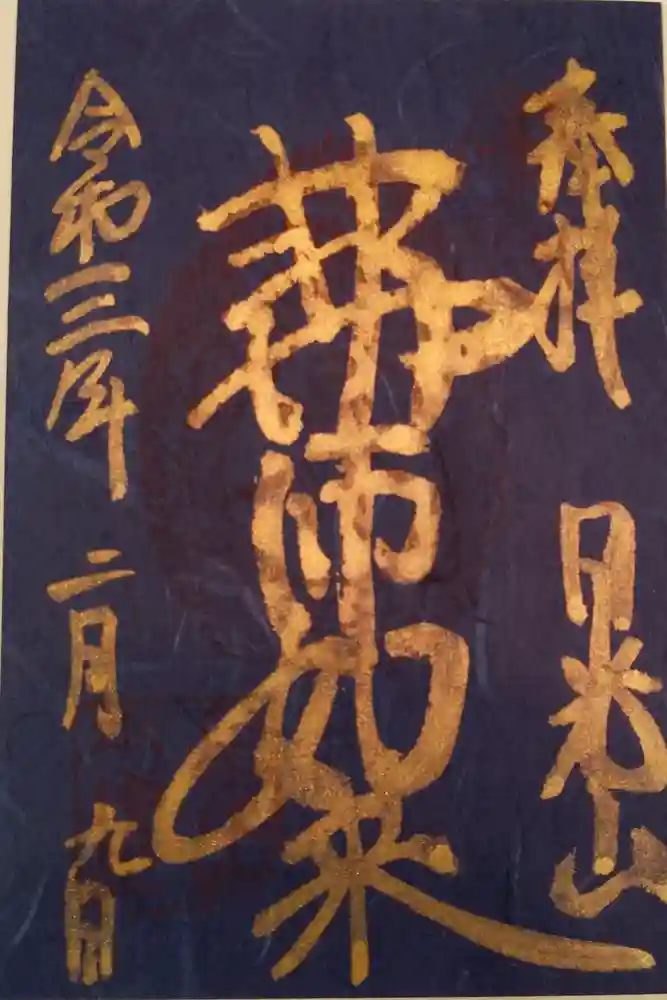 奉拝
日光山
薬師如来
令和三年
二月
九日